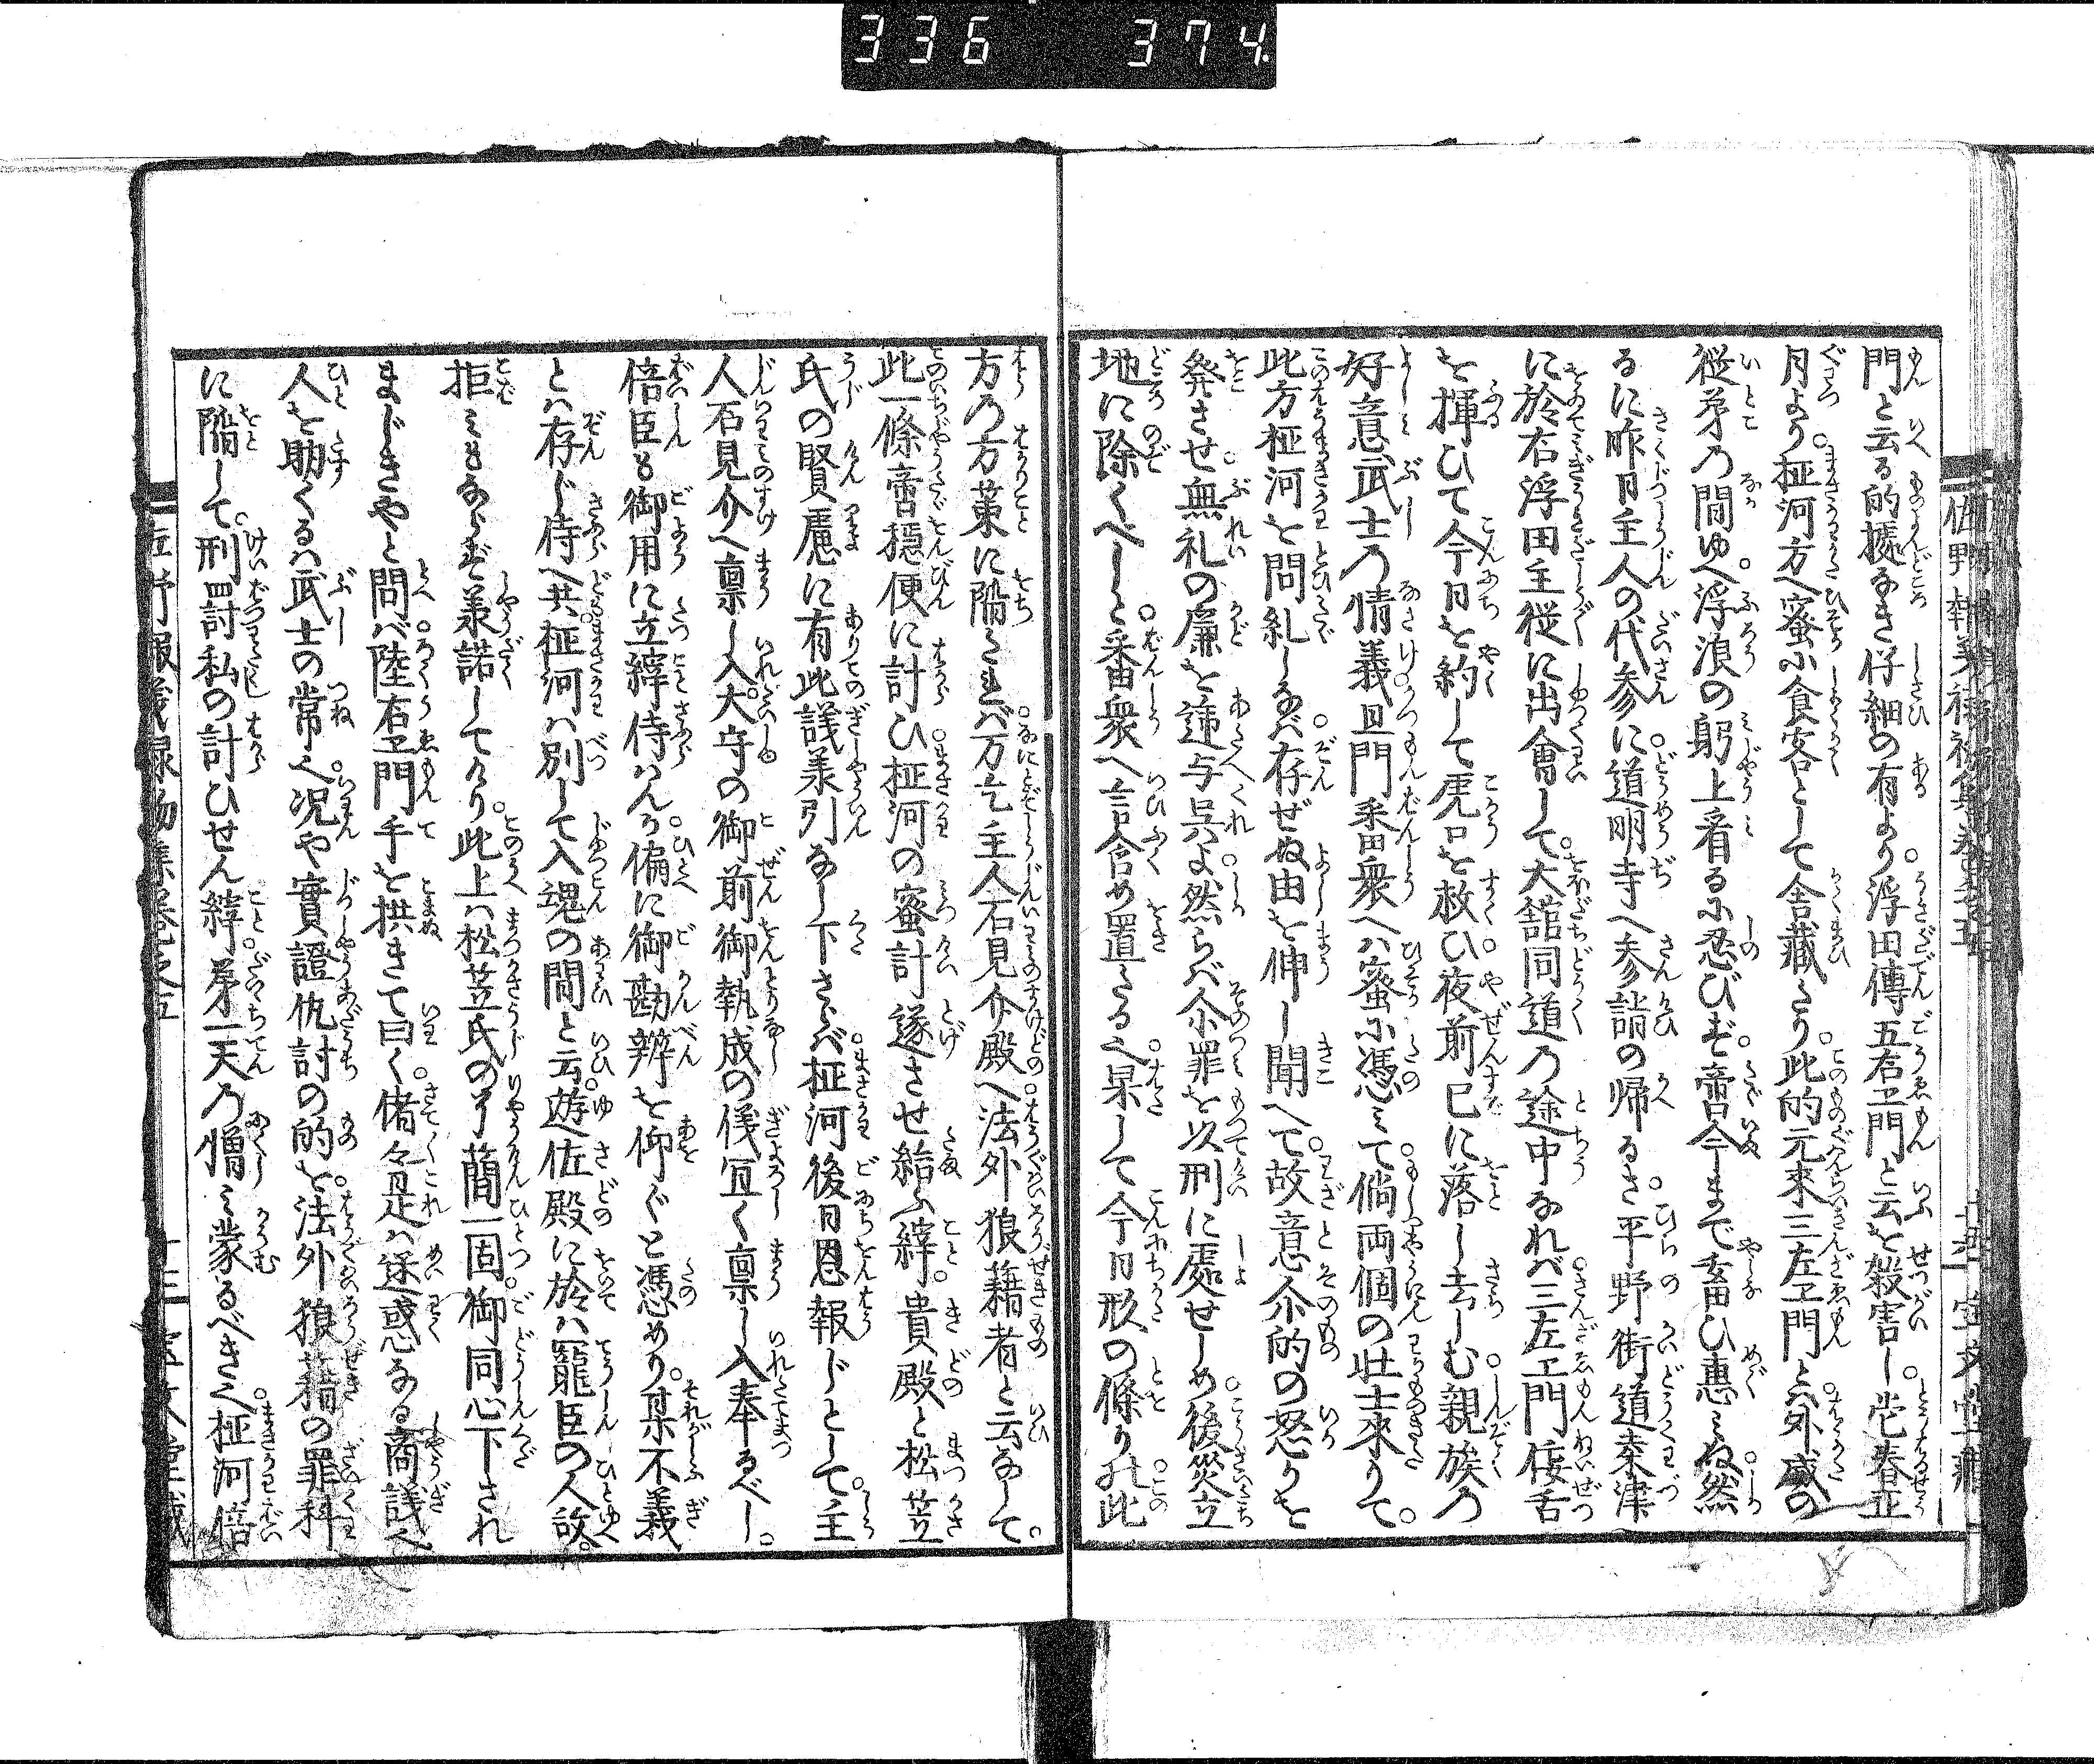 336 374
門と云る的據なき仔細の有より。浮田傳五右エ門と云を殺害し。㐂春正
月より。柾河方へ蜜に食客として舎藏たり。此的元來三左エ門とハ。外戚の
従弟の間ゆへ。浮浪の躬上看るに忍びず。啻今まで畜ひ惠ミぬ。然
るに昨日主人の代参に。道明寺へ参詣の帰るさ。平野街道秦津
に於右浮田主従に出會して。大舘同道の途中なれバ。三左エ門侫舌
を揮ひて今日を約して虎口を救ひ。夜前已に落し去しむ。親族の
好意武士の情義。且門番衆へハ蜜に憑ミて。倘両個の壮士來りて。
此方柾河を問糺しなバ。存ぜぬ由を伸し聞へて。故意尒的の怒りを
發させ。無礼の廉を遞与呉よ。然らべ尒罪を以刑に處せしめ。後災立
地に除くべしと。番衆へ言含め置たる也。果して今日形の條り。此
方の方策に陥たれバ。万乞主人石見介殿へ。法外狼藉者と云なして。
此一條啻穏便に計ひ。柾河の蜜計遂させ給ふ縡。貴殿と松笠
氏の賢慮に有。此議羕引なし下さらバ。柾河後日恩報じとして。主
人石見介へ禀し入。大守の御前御執成の儀宜く禀し入奉るべし。
倍臣も御用に立縡侍はん。偏に御勘辨を仰ぐと憑めり。某不義
とハ存じ侍へ共。柾河ハ別して入魂の間と云。遊佐殿に於ハ寵臣の人故。
拒ミもならず羕諾してけり。此上ハ松笠氏の了簡一固。御同心下され
まじきやと問バ。陸右エ門手を拱きて曰く。偖々是ハ迷惑なる商議也。
人を助くるハ武士の常也。况や實證仇討の的を。法外狼藉の罪科
に陥して。刑罸討私の計ひせん縡。第一天の憎ミ蒙るべき也。柾河倍